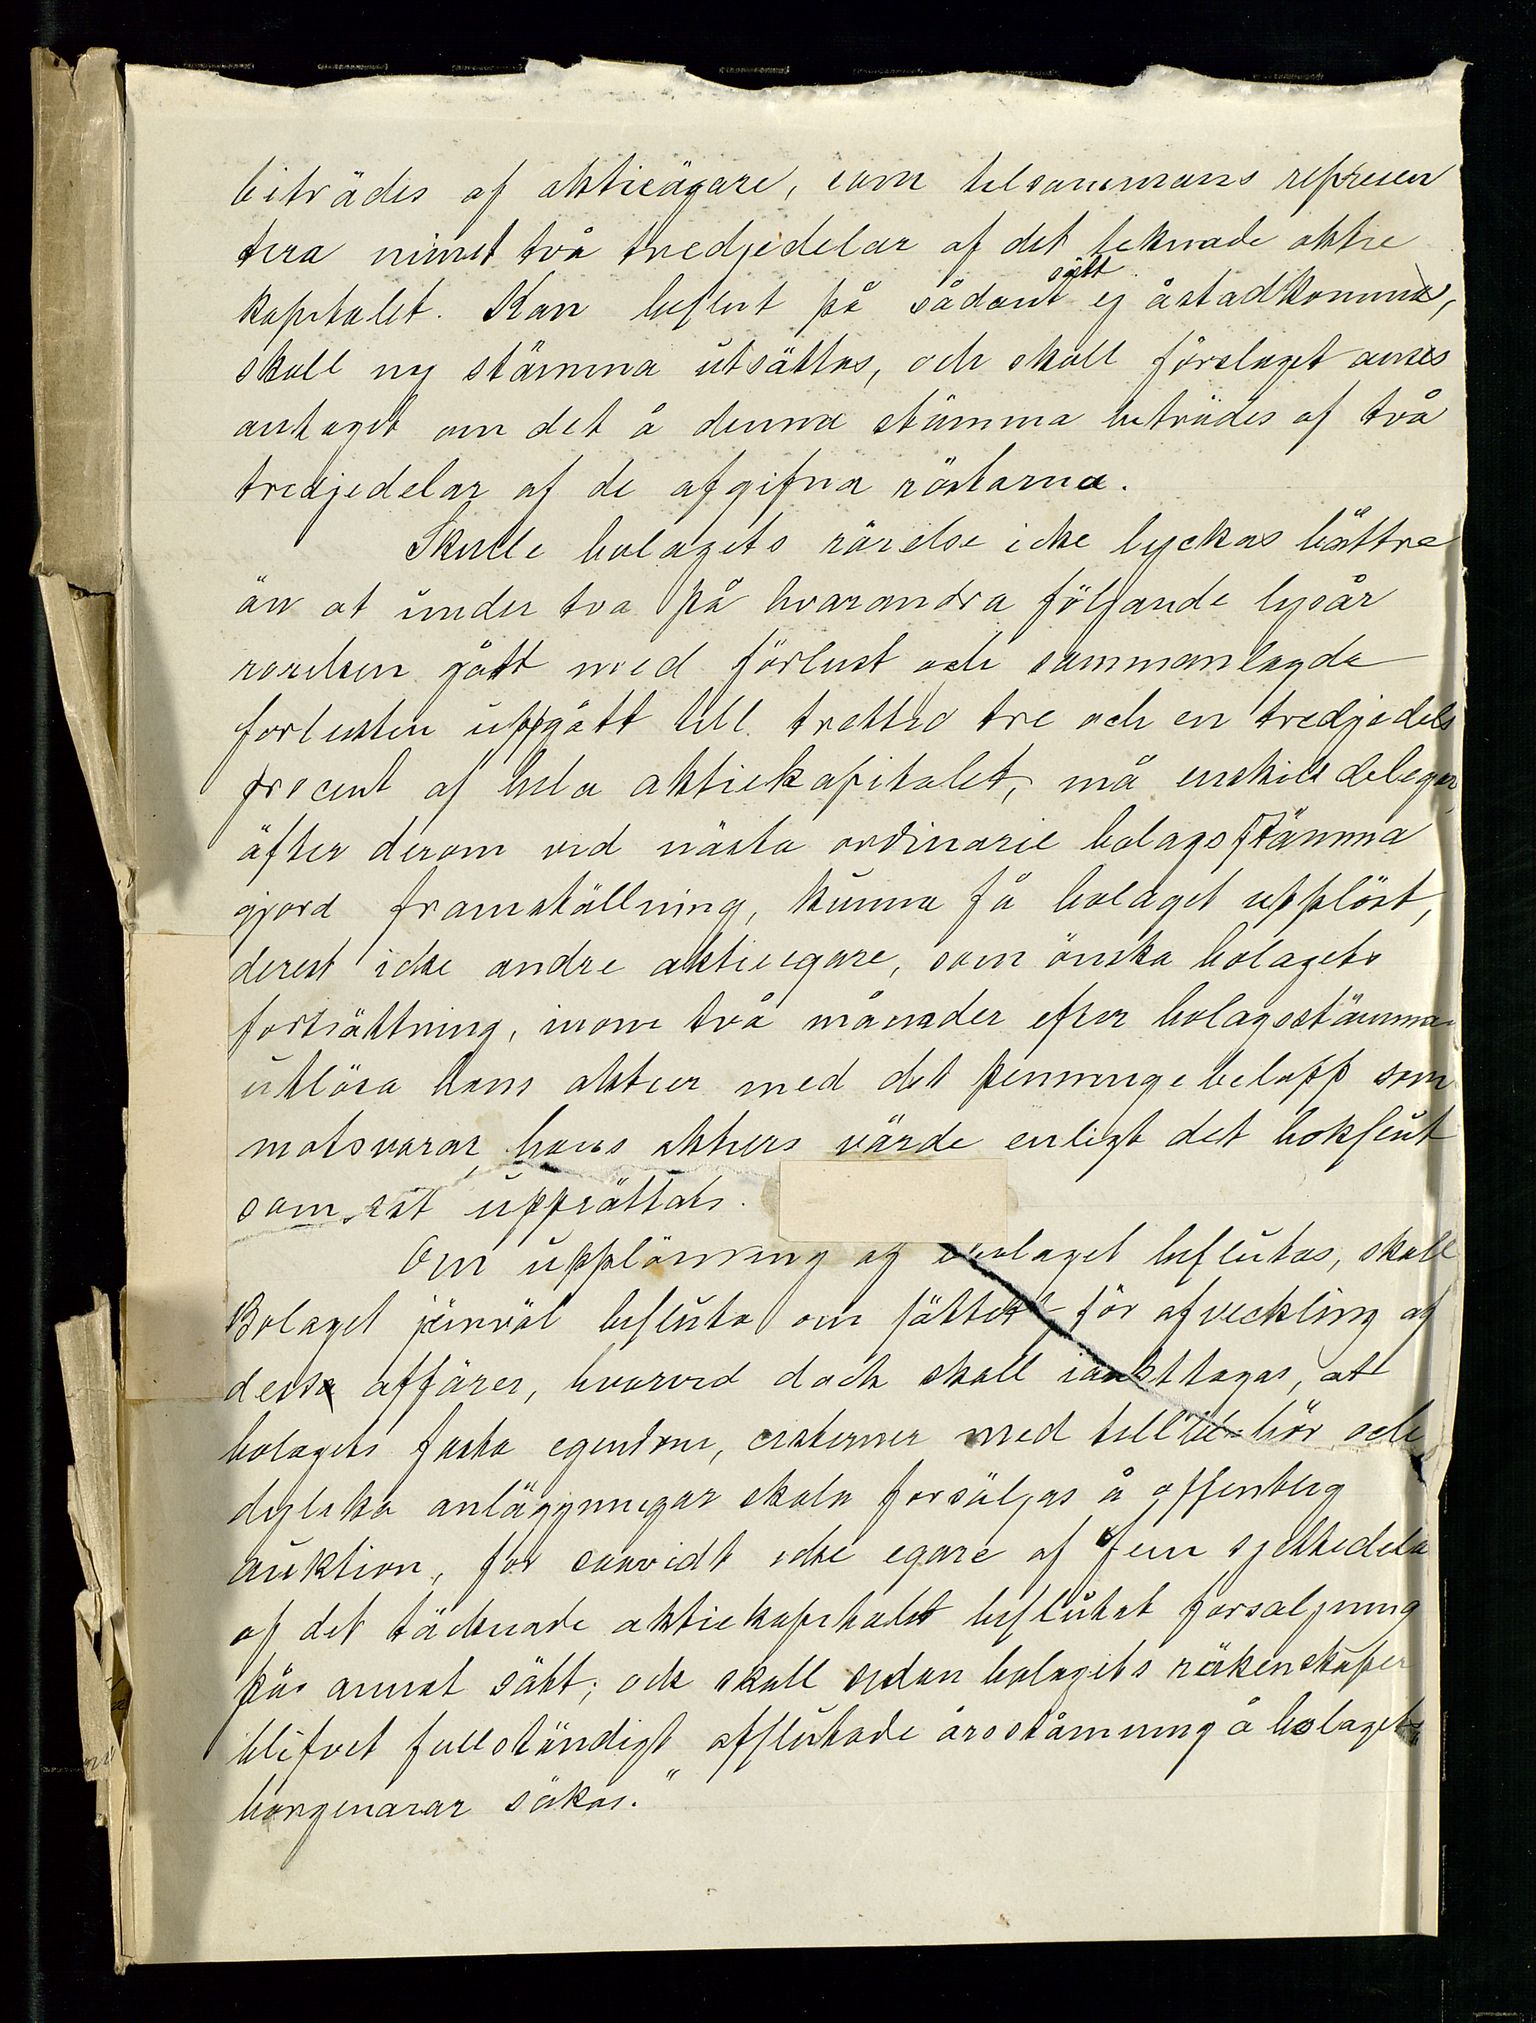 biträdes af aktieägare, som tilsammans represen
tera minst två tredjedelar af det teknade aktie
kapitalet. Kan beslut på sådant sätt ej åstadkomma,
skall ny stämma utsättas, och skall förslaget anses
antaget om det å denna stämma biträdes af två
tredjedelar af de afgifna rösterna.
Skulle bolagets rörelse icke lyckas bättre
än at under tva på hvarandra följande lysår
rorelsen gått med förlust och sammanlagda
forlusten uppgått till trettio tre och en tredjedels
procent af hela aktiekapitalet, må enskild delegar,
äfter derom vid nästa ordinarie bolagsstämma
gjord framställning, kunna få bolaget upplöst,
derest icke andre aktieegare, som önska bolagets
fortsättning, inom två månader efter bolagsstämma
utlösa hans aktier med det penningebelopp som
motsvarar hans aktiers värde enligt det bokslut
som sist upprättats.
Om upplösning af bolaget beslutas, skall
Bolaget jämväl besluta om sättet för afveckling af
dessa affärer, hvarvid dock skall iakttagas, at
bolagets fasta egendom, cisterner med tillbehör och
dylika anläggningar skola forsäljas å offentlig
auktion, for såvidt icke egare af fem sjettedela
af det täcknade aktiekapitalet beslutat forsaljning
på annat sätt; och skall sedan bolagets räkenskaper
blifvet fullständigt afslutade årsstämning å bolagets
borgenarar sökas."